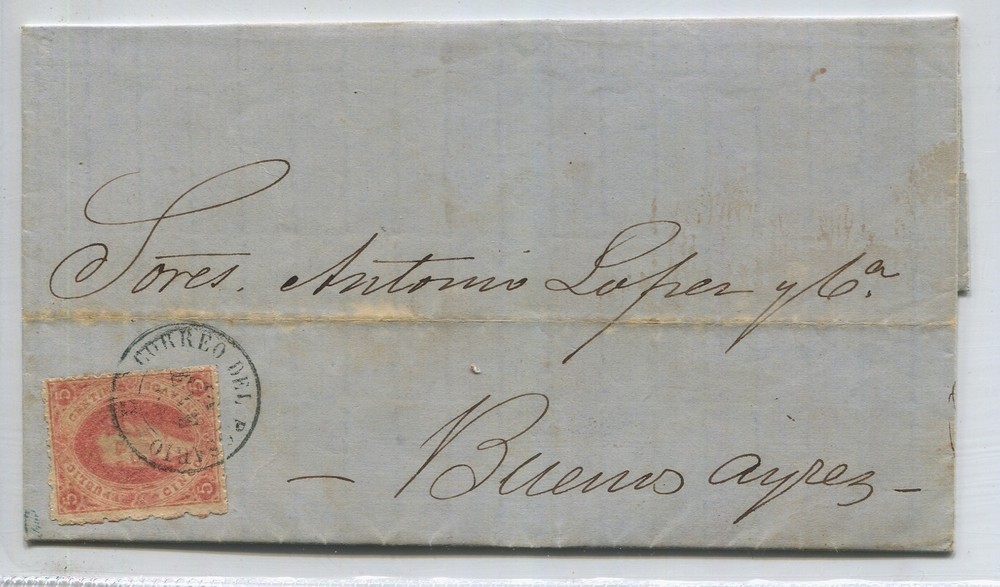 Sores. Antonio Lopez y Ca.
— Buenos ayrez —
CORREO DEL ROSARIO
5 5
CENTAVOS
5 5